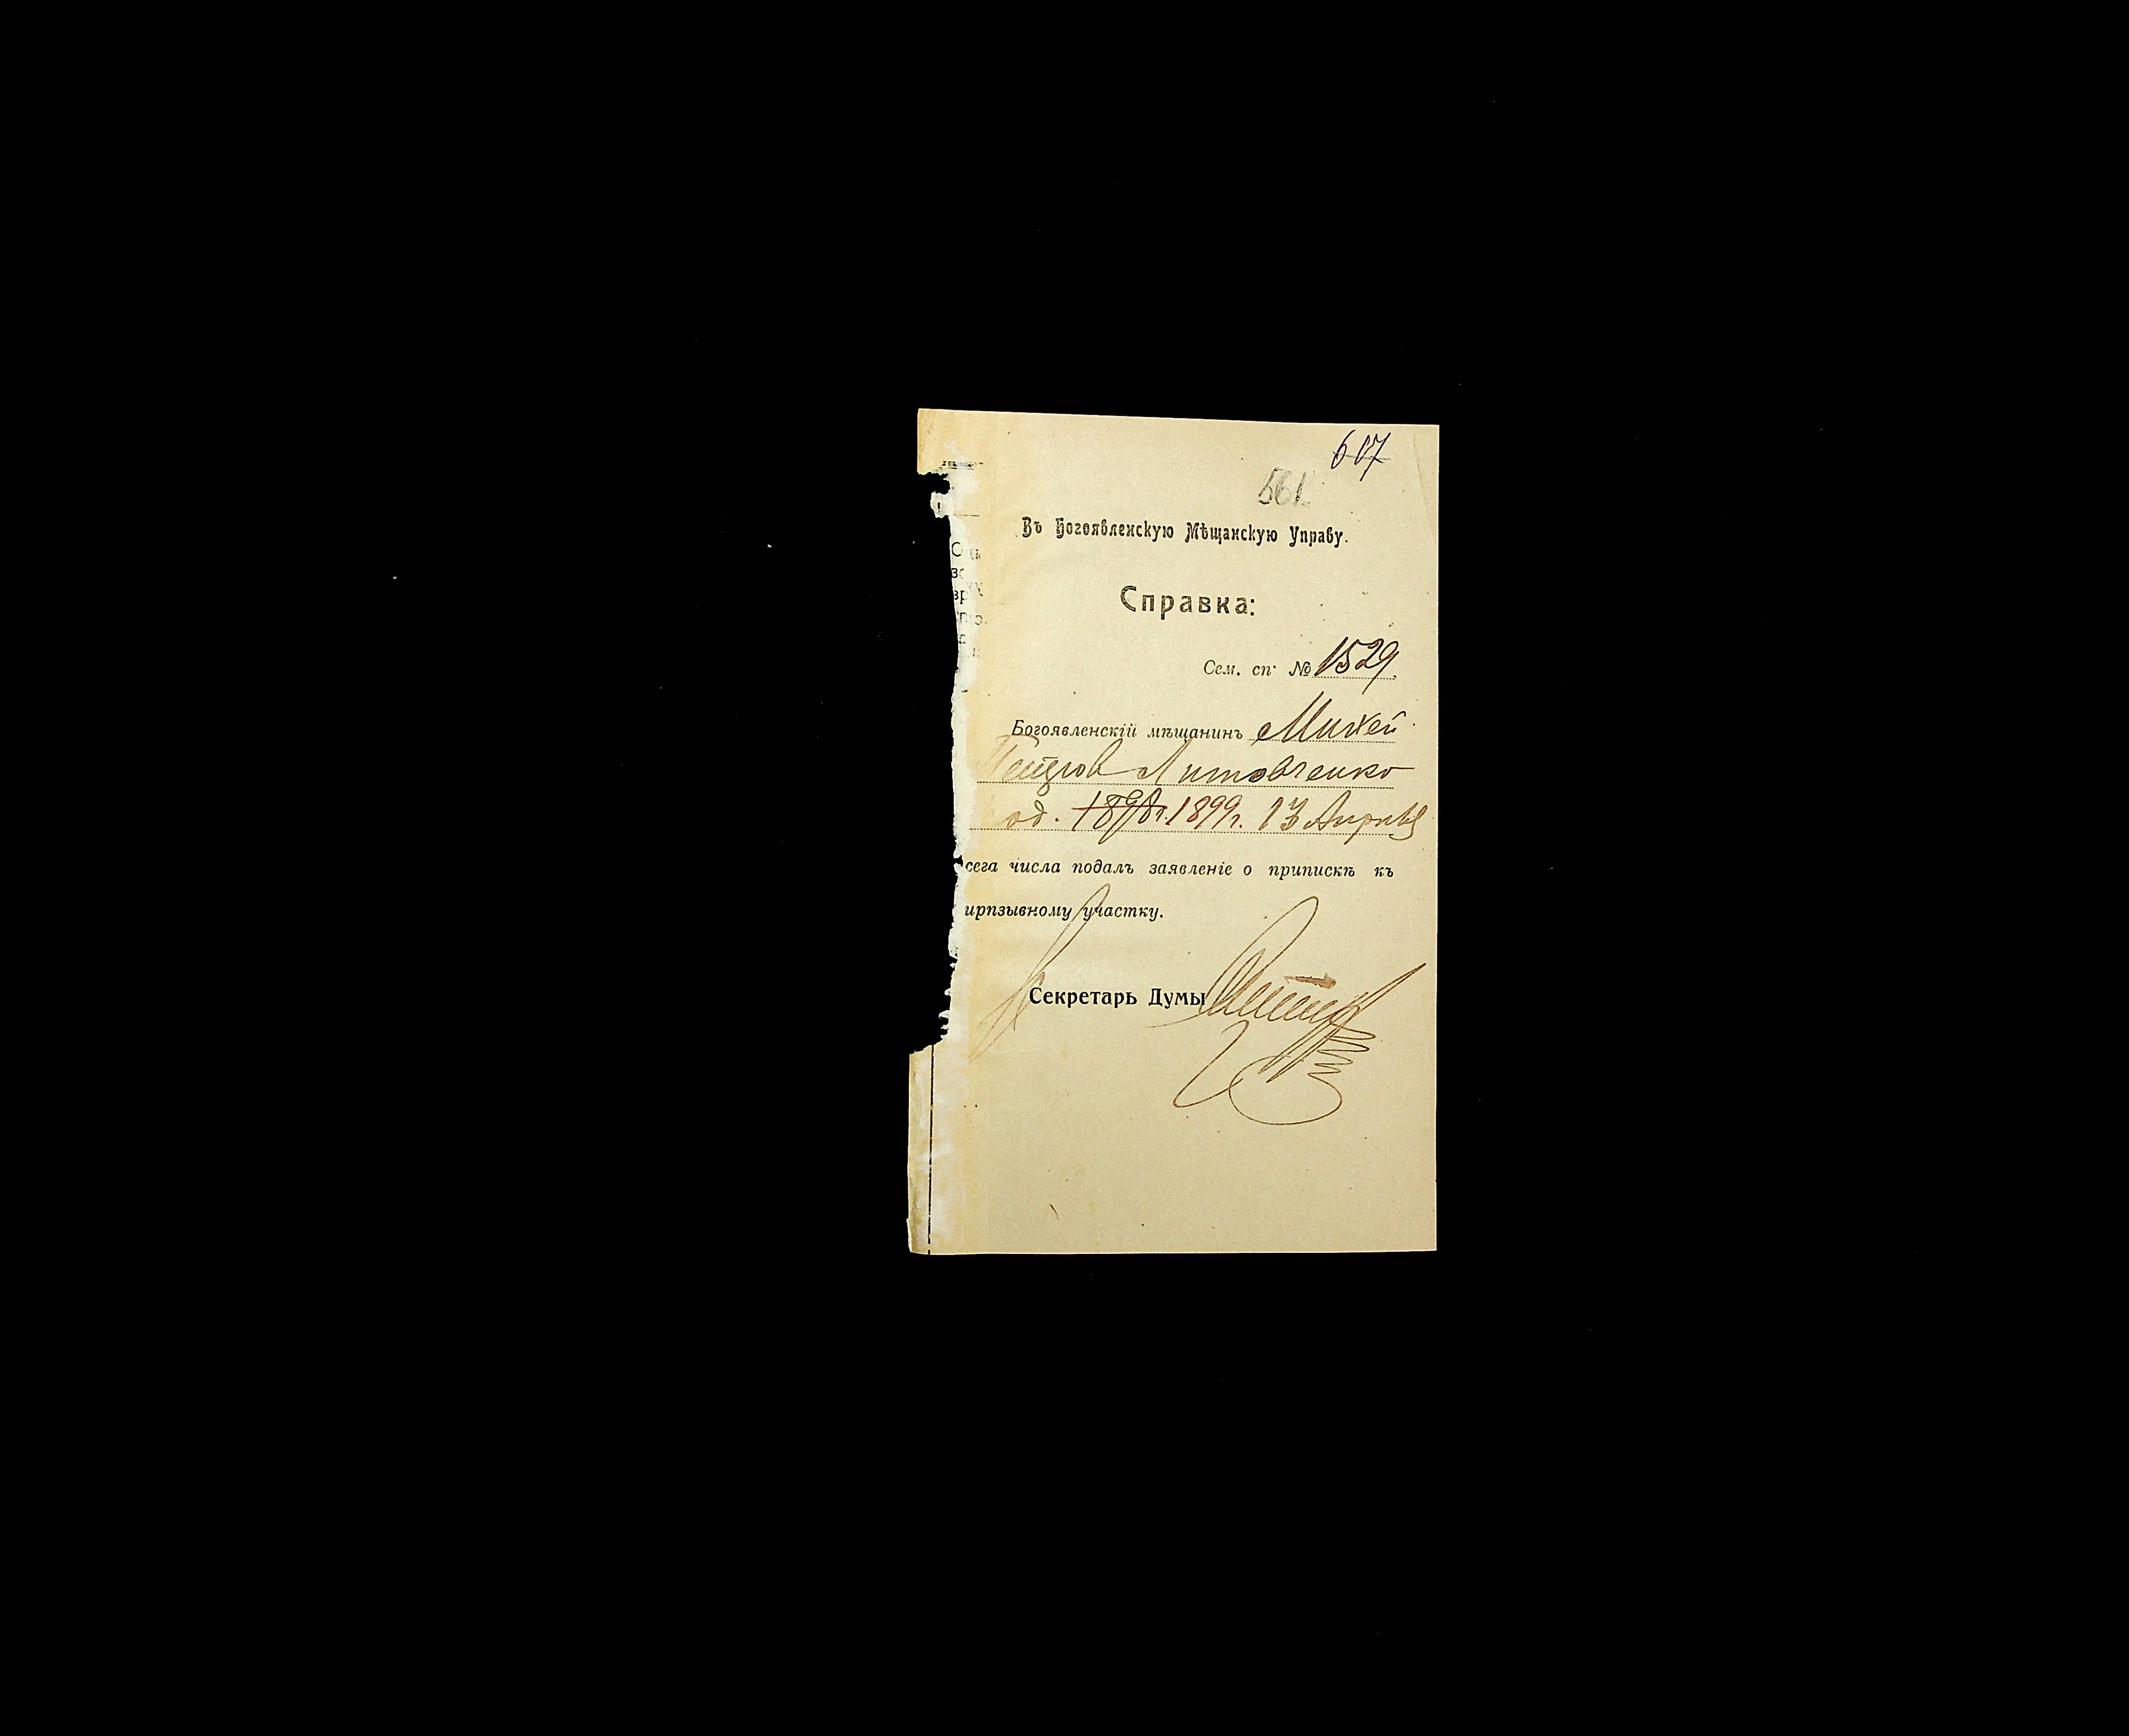 607
561
Въ Богоявленскую Мѣщанскую Управу.
Справка:
Сем. сп. № 1529
Богоявленскій мѣщанинъ Михей
Петров Литовченко
од. 1898г. 1899г. 13 Апрѣля
сега числа подалъ заявленіе о припискѣ къ
ирпзывному участку.
Секретарь Думы